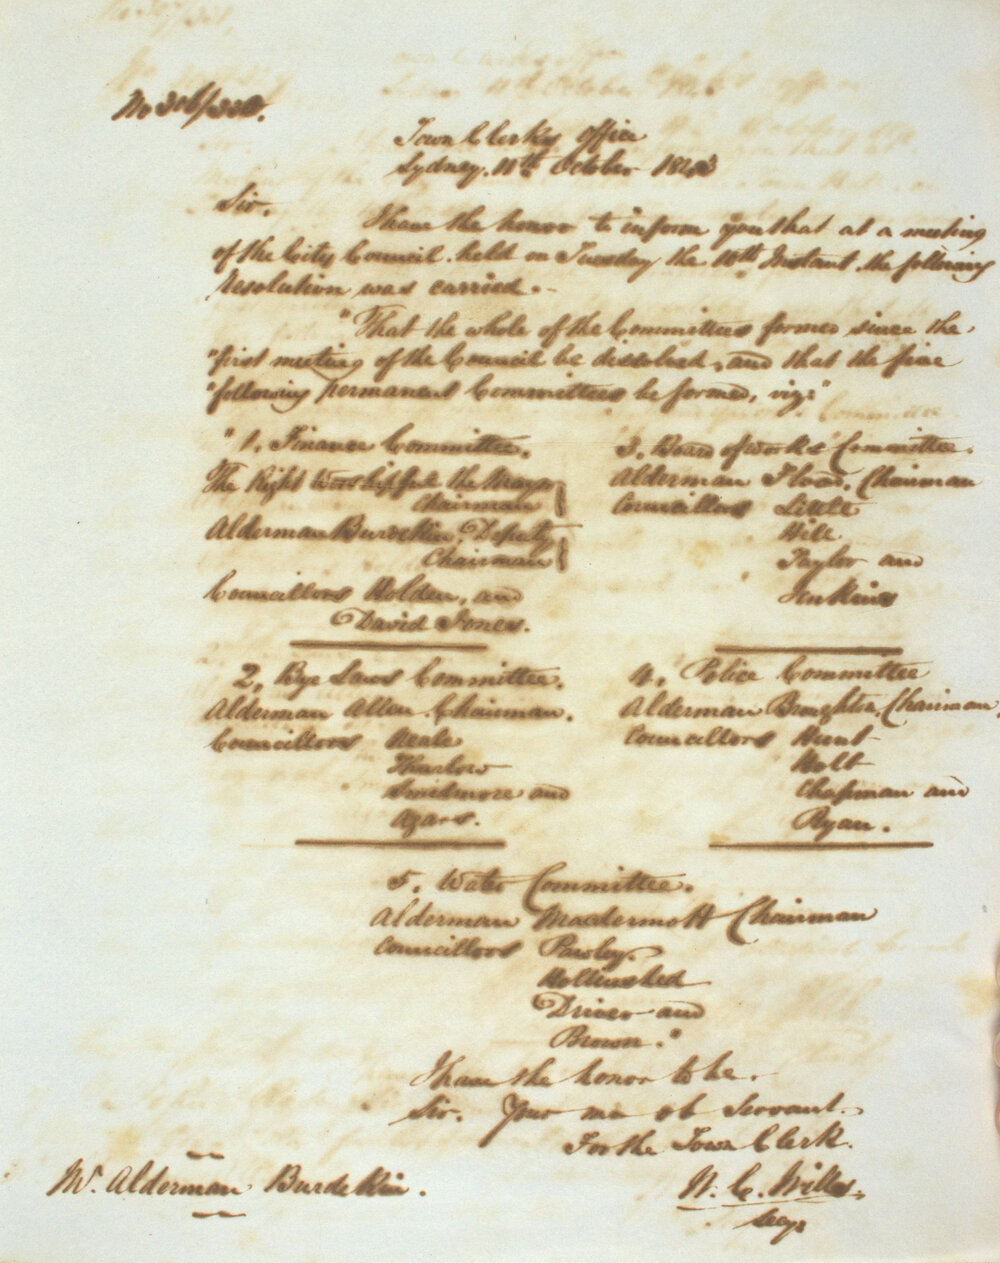 Town Clerks office
Sydney. 11th October 1843
Sir.
I have the honor to inform you that at a meeting
of the City Council held on Tuesday the 10th Instant the following
Resolution was carried.-
"That the whole of the Committees formed since the
"first meeting of the Council be dissolved, and that the five
"following permanent Committees be formed, viz:"
"1. Finance Committee.
The Right Worshipful the Mayor
Chairman
Alderman Burdekin. Deputy
Chairman
Councillors Holden, and
David Jones.
2. Bye Laws Committee.
Alderman Allen. Chairman.
Councillors Neale
Thurlow
Smidmore and
Agars.
3. Board of works' Committee.
Alderman Flood. Chairman
Councillors Little
Hill
Taylor and
Jenkins
4. Police Committee
Alderman Broughton. Chairman
Councillors Hunt
Holt
Chapman and
Ryan.
5. Water Committee.
Alderman Macdermott Chairman
Councillors Paisley.
Hollinshed
Driver and
Brown."
I have the honor to be.
Sir. Your mo ob Servant.
For the Town Clerk.
Mr. Alderman Burdekin.